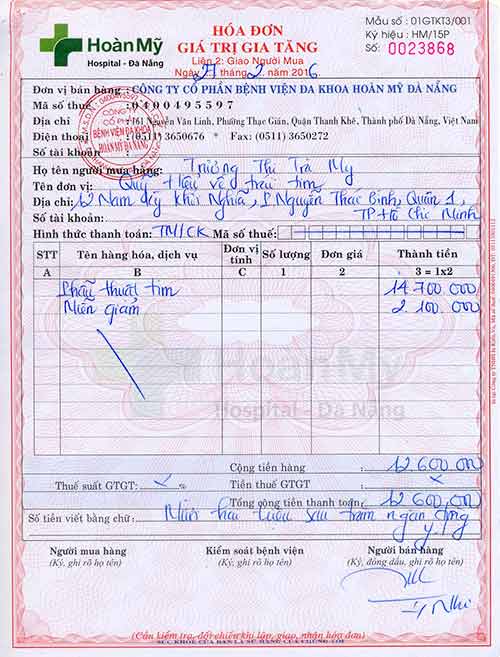 HoànMỹ
Hospital - Đà Nẵng
HÓA ĐƠN
GIÁ TRỊ GIA TĂNG
Liên 2: Giao Người Mua
Ngày 27 tháng 2 năm 2016
Mẫu số : 01GTKT3/001
Ký hiệu : HM/15P
Số: 0023868
Đơn vị bán hàng : CÔNG TY CỔ PHẦN BỆNH VIỆN ĐA KHOA HOÀN MỸ ĐÀ NẴNG
Mã số thuế : 0400495597
Địa chỉ : 161 Nguyễn Văn Linh, Phường Thạc Gián, Quận Thanh Khê, Thành phố Đà Nẵng, Việt Nam
Điện thoại : (0511) 3650676 * Fax: (0511) 3650272
Số tài khoản :
BỆNH VIỆN ĐA KHOA
HOÀN MỸ ĐÀ NẴNG
Họ tên người mua hàng: Trương Thị Trà My
Tên đơn vị: Quỹ Hiểu về trái tim
Địa chỉ: 62 Nam Kỳ Khởi Nghĩa, P. Nguyễn Thái Bình, Quận 1,
Số tài khoản: TP Hồ Chí Minh
Hình thức thanh toán: TM/CK Mã số thuế:
STT Tên hàng hóa, dịch vụ Đơn vị tính Số lượng Đơn giá Thành tiền
A B C 1 2 3 = 1x2
Phẫu thuật tim 14.700.000
Miễn giảm 2.100.000
HoànMỹ
Hospital - Đà Nẵng
Cộng tiền hàng : 12.600.000
Thuế suất GTGT: x % Tiền thuế GTGT : x
Tổng cộng tiền thanh toán: 12.600.000
Số tiền viết bằng chữ: Mười hai triệu sáu trăm ngàn đồng
y
Người mua hàng Kiểm soát bệnh viện Người bán hàng
(Ký, ghi rõ họ tên) (Ký, ghi rõ họ tên) (Ký, đóng dấu, ghi rõ họ tên)
(Cần kiểm tra, đối chiếu khi lập, giao, nhận hóa đơn)
SỨC KHỎE CỦA BẠN LÀ SỨ MỆNH CỦA CHÚNG TÔI